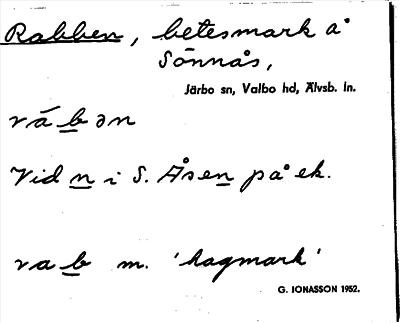 Rabben, betesmark å
Sönnås,
Järbo sn, Valbo hd, Älvsb. ln.
vábən
Vid n i S. Åsen på ek.
vab m. 'hagmark'
G. JONASSON 1952.